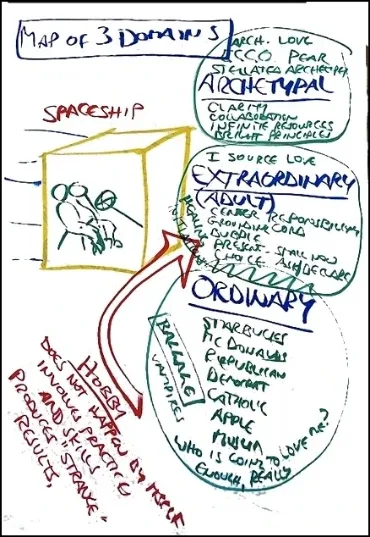 MAP OF 3 DOMAINS
ARCH. LOVE
PEAR
STELLATED ARCHETYPE
ARCHETYPAL
CLARITY
COLLABORATION
INFINITE RESOURCES
BRIGHT PRINCIPLES
SPACESHIP
I SOURCE LOVE
EXTRAORDINARY
(ADULT)
CENTER RESPONSIBILITY
GROUNDING CORD
BUBBLE
PRESENT SMALL NOW
CHOICE ASK/DECLARE
ORDINARY
STARBUCKS
MCDONALDS
REPUBLICAN
DEMOCRAT
CATHOLIC
APPLE
MUSLIM
WHO IS GOING TO LOVE ME?
ENOUGH, REALLY
VAMPIRES
HOBBY
DOES NOT HAPPEN BY ITSELF
INVOLVES PRACTICE
AND SKILLS
PRODUCES STRANGE
RESULTS,